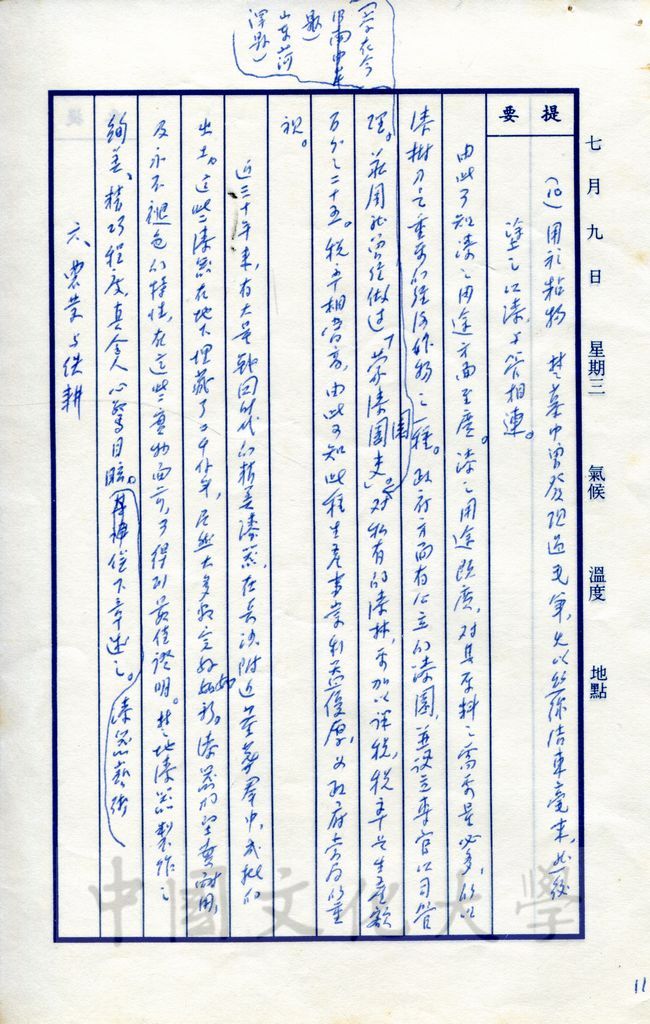 七月九日 星期三 氣候 溫度 地點
提要
(10)用於粘物 楚墓中曾發現過毛筆,先以絲線結束毫末,然後
塗之以漆,与管相連。
由此可知漆之用途方面至廣。漆之用途既廣,對其原料之需要量必多,所以
漆樹乃是重要的經濟作物之一種。政府方面有公立的漆園,並設立專官以司管
理。莊周就曾經做过「蒙漆園吏」。對私有的漆林,要加以課稅,稅率是生產額
百分之二十五。稅率相當高,由此可知此種生產事業利益優厚,为政府当局所重
視。
(蒙在今
河南
山東菏
澤縣)
近三十年來,有大量戰國時代的精美漆器,在長沙附近古墓葬群中,成批的
出土。这些漆器在地下埋藏了二千餘年,居然大多都完好如新。漆器的堅實耐用,
及永不褪色的特性,在這些實物面前,可得到最佳證明。楚地漆器製作之
絢美、精巧程度,真令人心驚目眩。漆器藝術
下章述之。
六、農業与鉄耕
中國文化大學
11